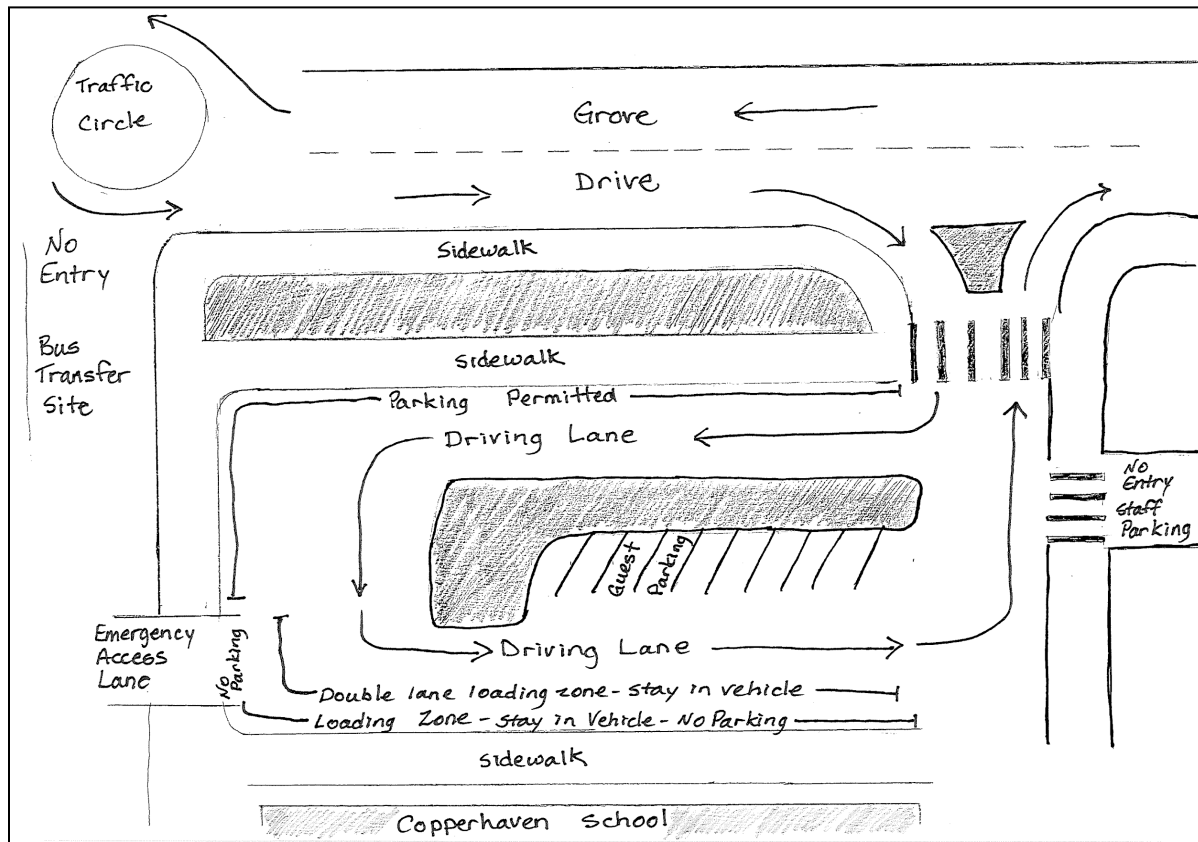 Traffic
Circle
Grove
Drive
No
Entry
Sidewalk
Bus
Transfer
Site
Sidewalk
Parking Permitted
Driving Lane
No
Entry
Staff
Parking
Guest
Parking
Emergency
Access
Lane
No
Parking
Driving Lane
Double lane loading zone - stay in vehicle
Loading Zone - Stay in Vehicle - No Parking
Sidewalk
Copperhaven School